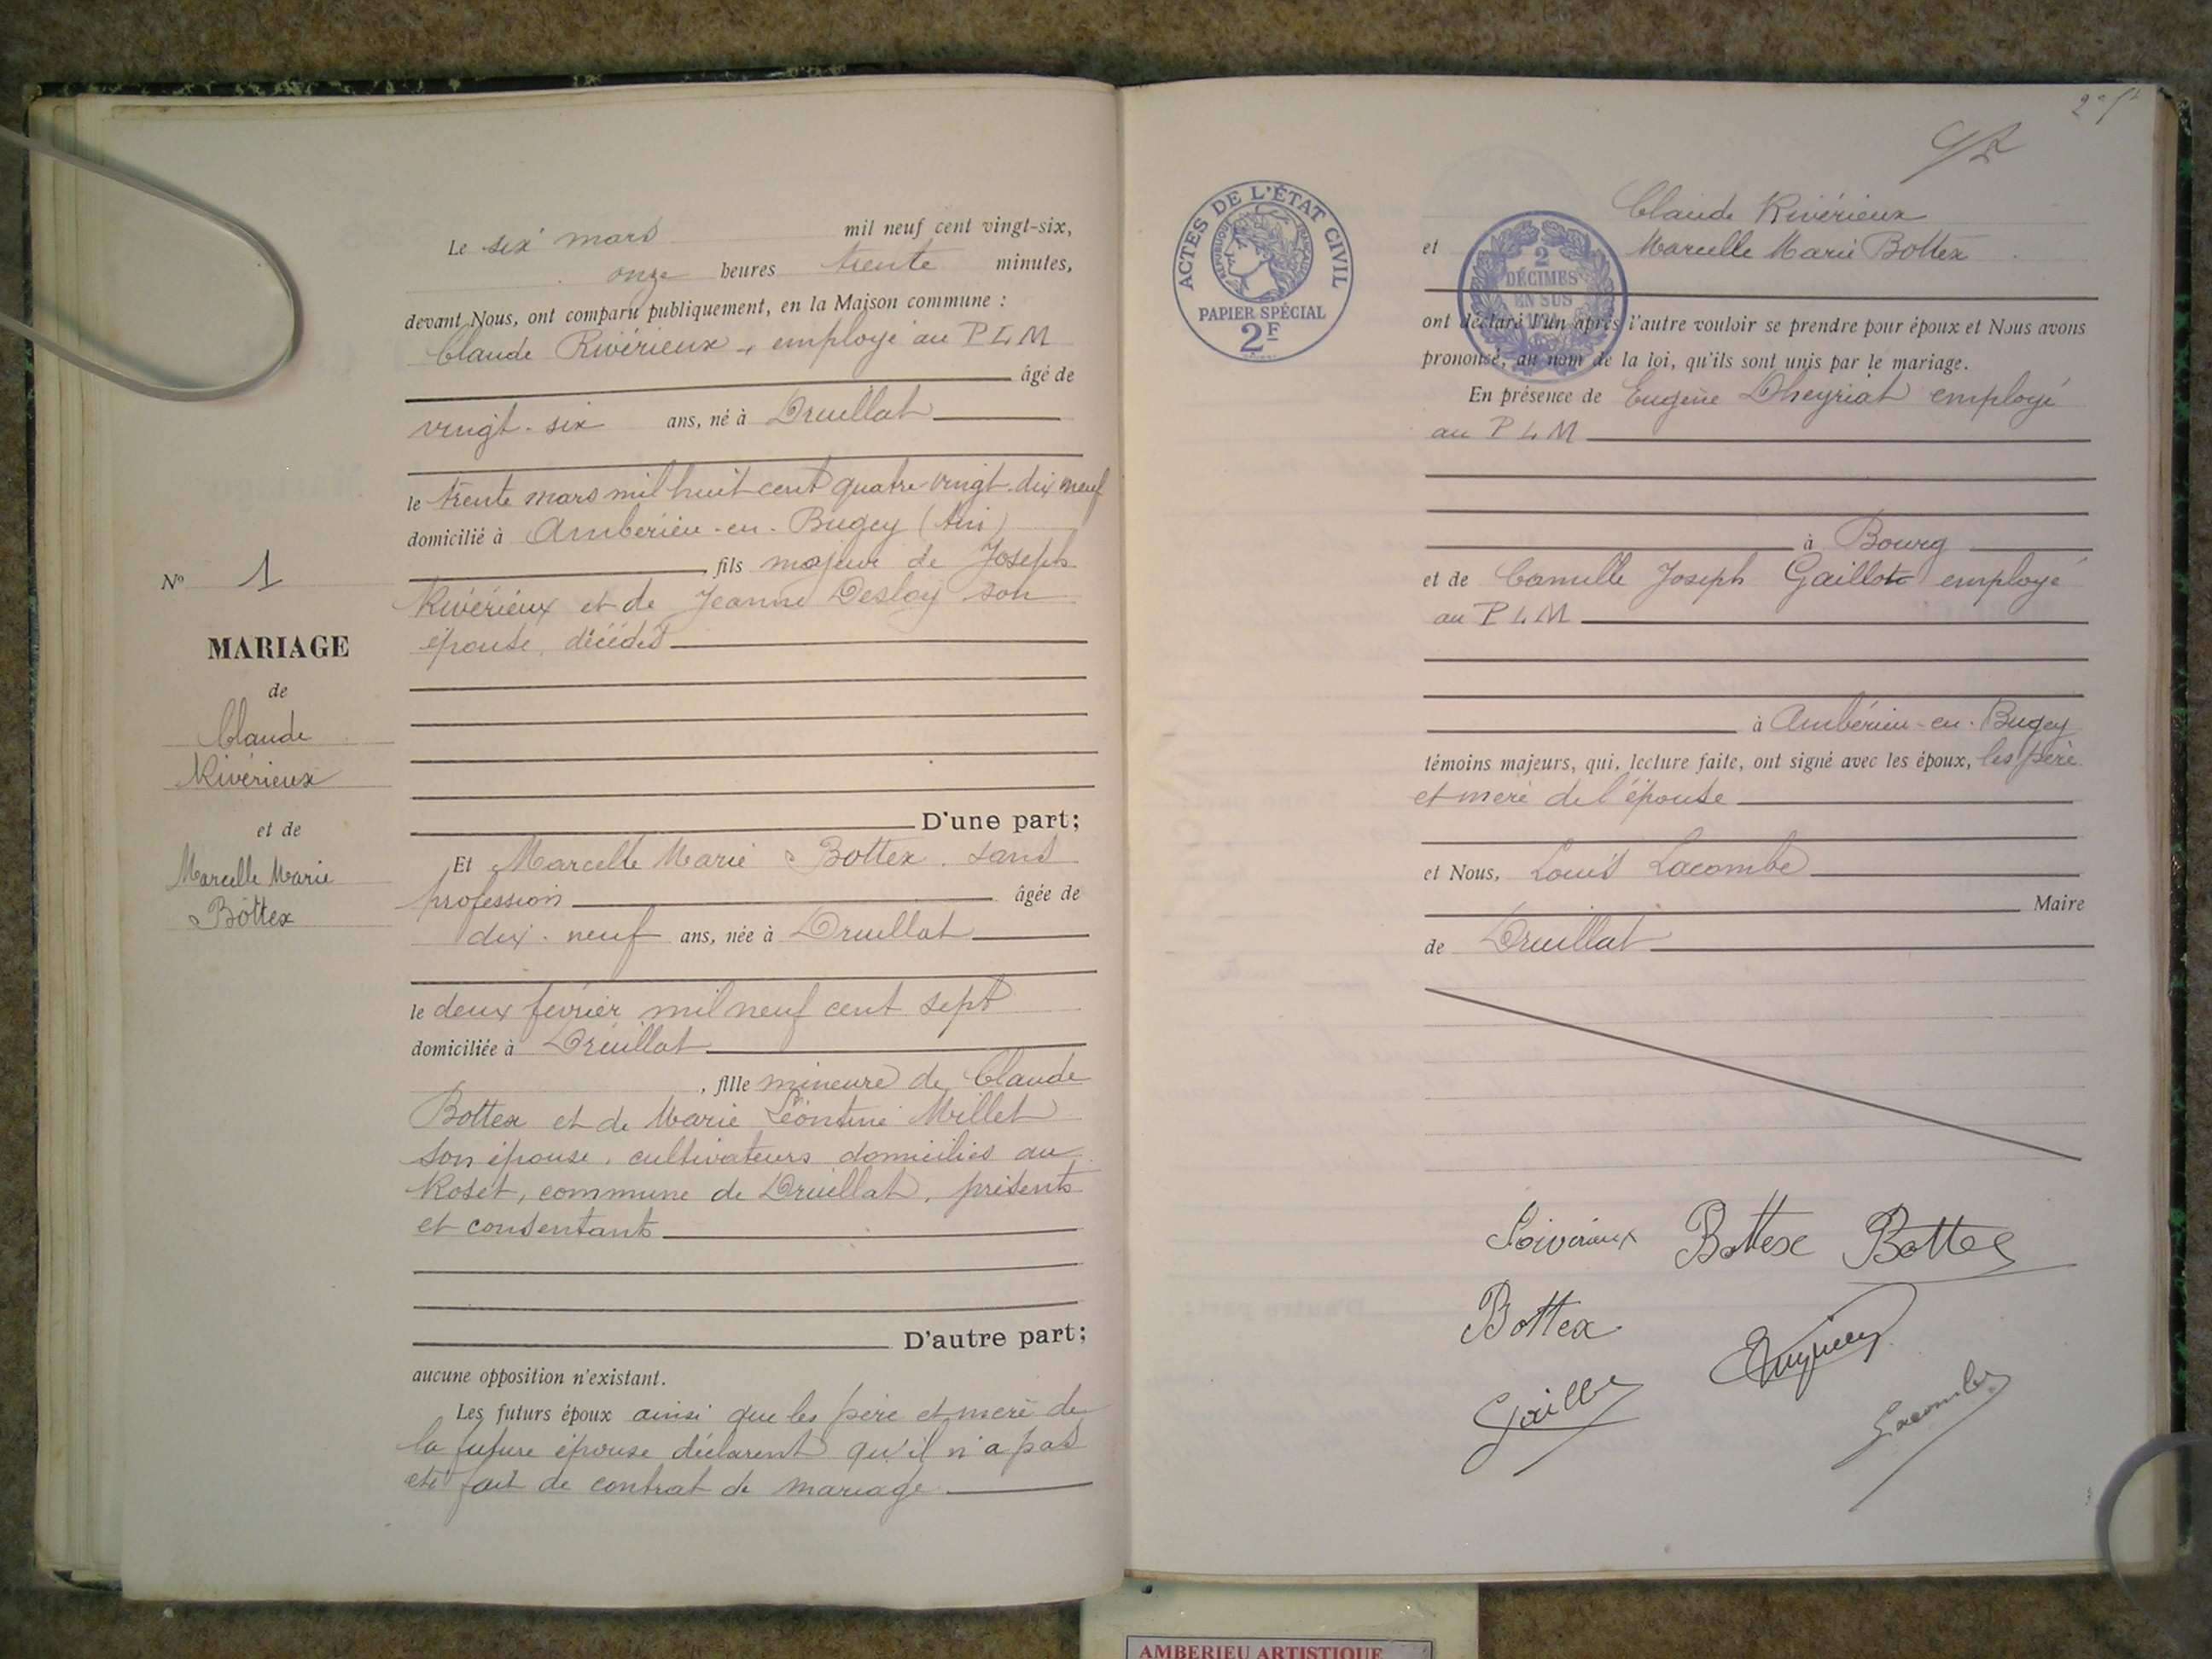 Le six mars mil neuf cent vingt-six,
onze heures trente minutes,
devant Nous, ont comparu publiquement, en la Maison commune :
Claude Rivérieux, employé au PLM
âgé de
vingt-six ans, né à Druillat
le trente mars mil huit cent quatre vingt-dix neuf
domicilié à Ambérieu-en-Bugey (Ain)
fils majeur de Joseph
Rivérieux et de Jeanne Desloy son
épouse, décédés
D'une part;
Et Marcelle Marie Bottex, sans
profession âgée de
dix-neuf ans, née à Druillat
le deux février mil neuf cent sept
domiciliée à Druillat
, fille mineure de Claude
Bottex et de Marie Léontine Millet
son épouse, cultivateurs domiciliés au
Roset, commune de Druillat, présents
et consentants
D'autre part;
aucune opposition n'existant.
Les futurs époux ainsi que les père et mère de
la future épouse déclarent qu'il n'a pas
été fait de contrat de mariage
No 1
MARIAGE
de
Claude
Rivérieux
et de
Marcelle Marie
Bottex
ACTES DE L'ÉTAT CIVIL
RÉPUBLIQUE FRANÇAISE
PAPIER SPÉCIAL
2F
2
DÉCIMES
EN SUS
Claude Rivérieux
et Marcelle Marie Bottex
ont déclaré l'un après l'autre vouloir se prendre pour époux et Nous avons
prononcé, au nom de la loi, qu'ils sont unis par le mariage.
En présence de Eugène Dheyriat employé
au PLM
à Bourg
et de Camille Joseph Gaillot employé
au PLM
à Ambérieu-en-Bugey
témoins majeurs, qui, lecture faite, ont signé avec les époux, les père
et mère de l'épouse
et Nous, Louis Lacombe
Maire
de Druillat
Rivérieux Bottex Bottex
Bottex
Lacombe
AMBERIEU ARTISTIQUE